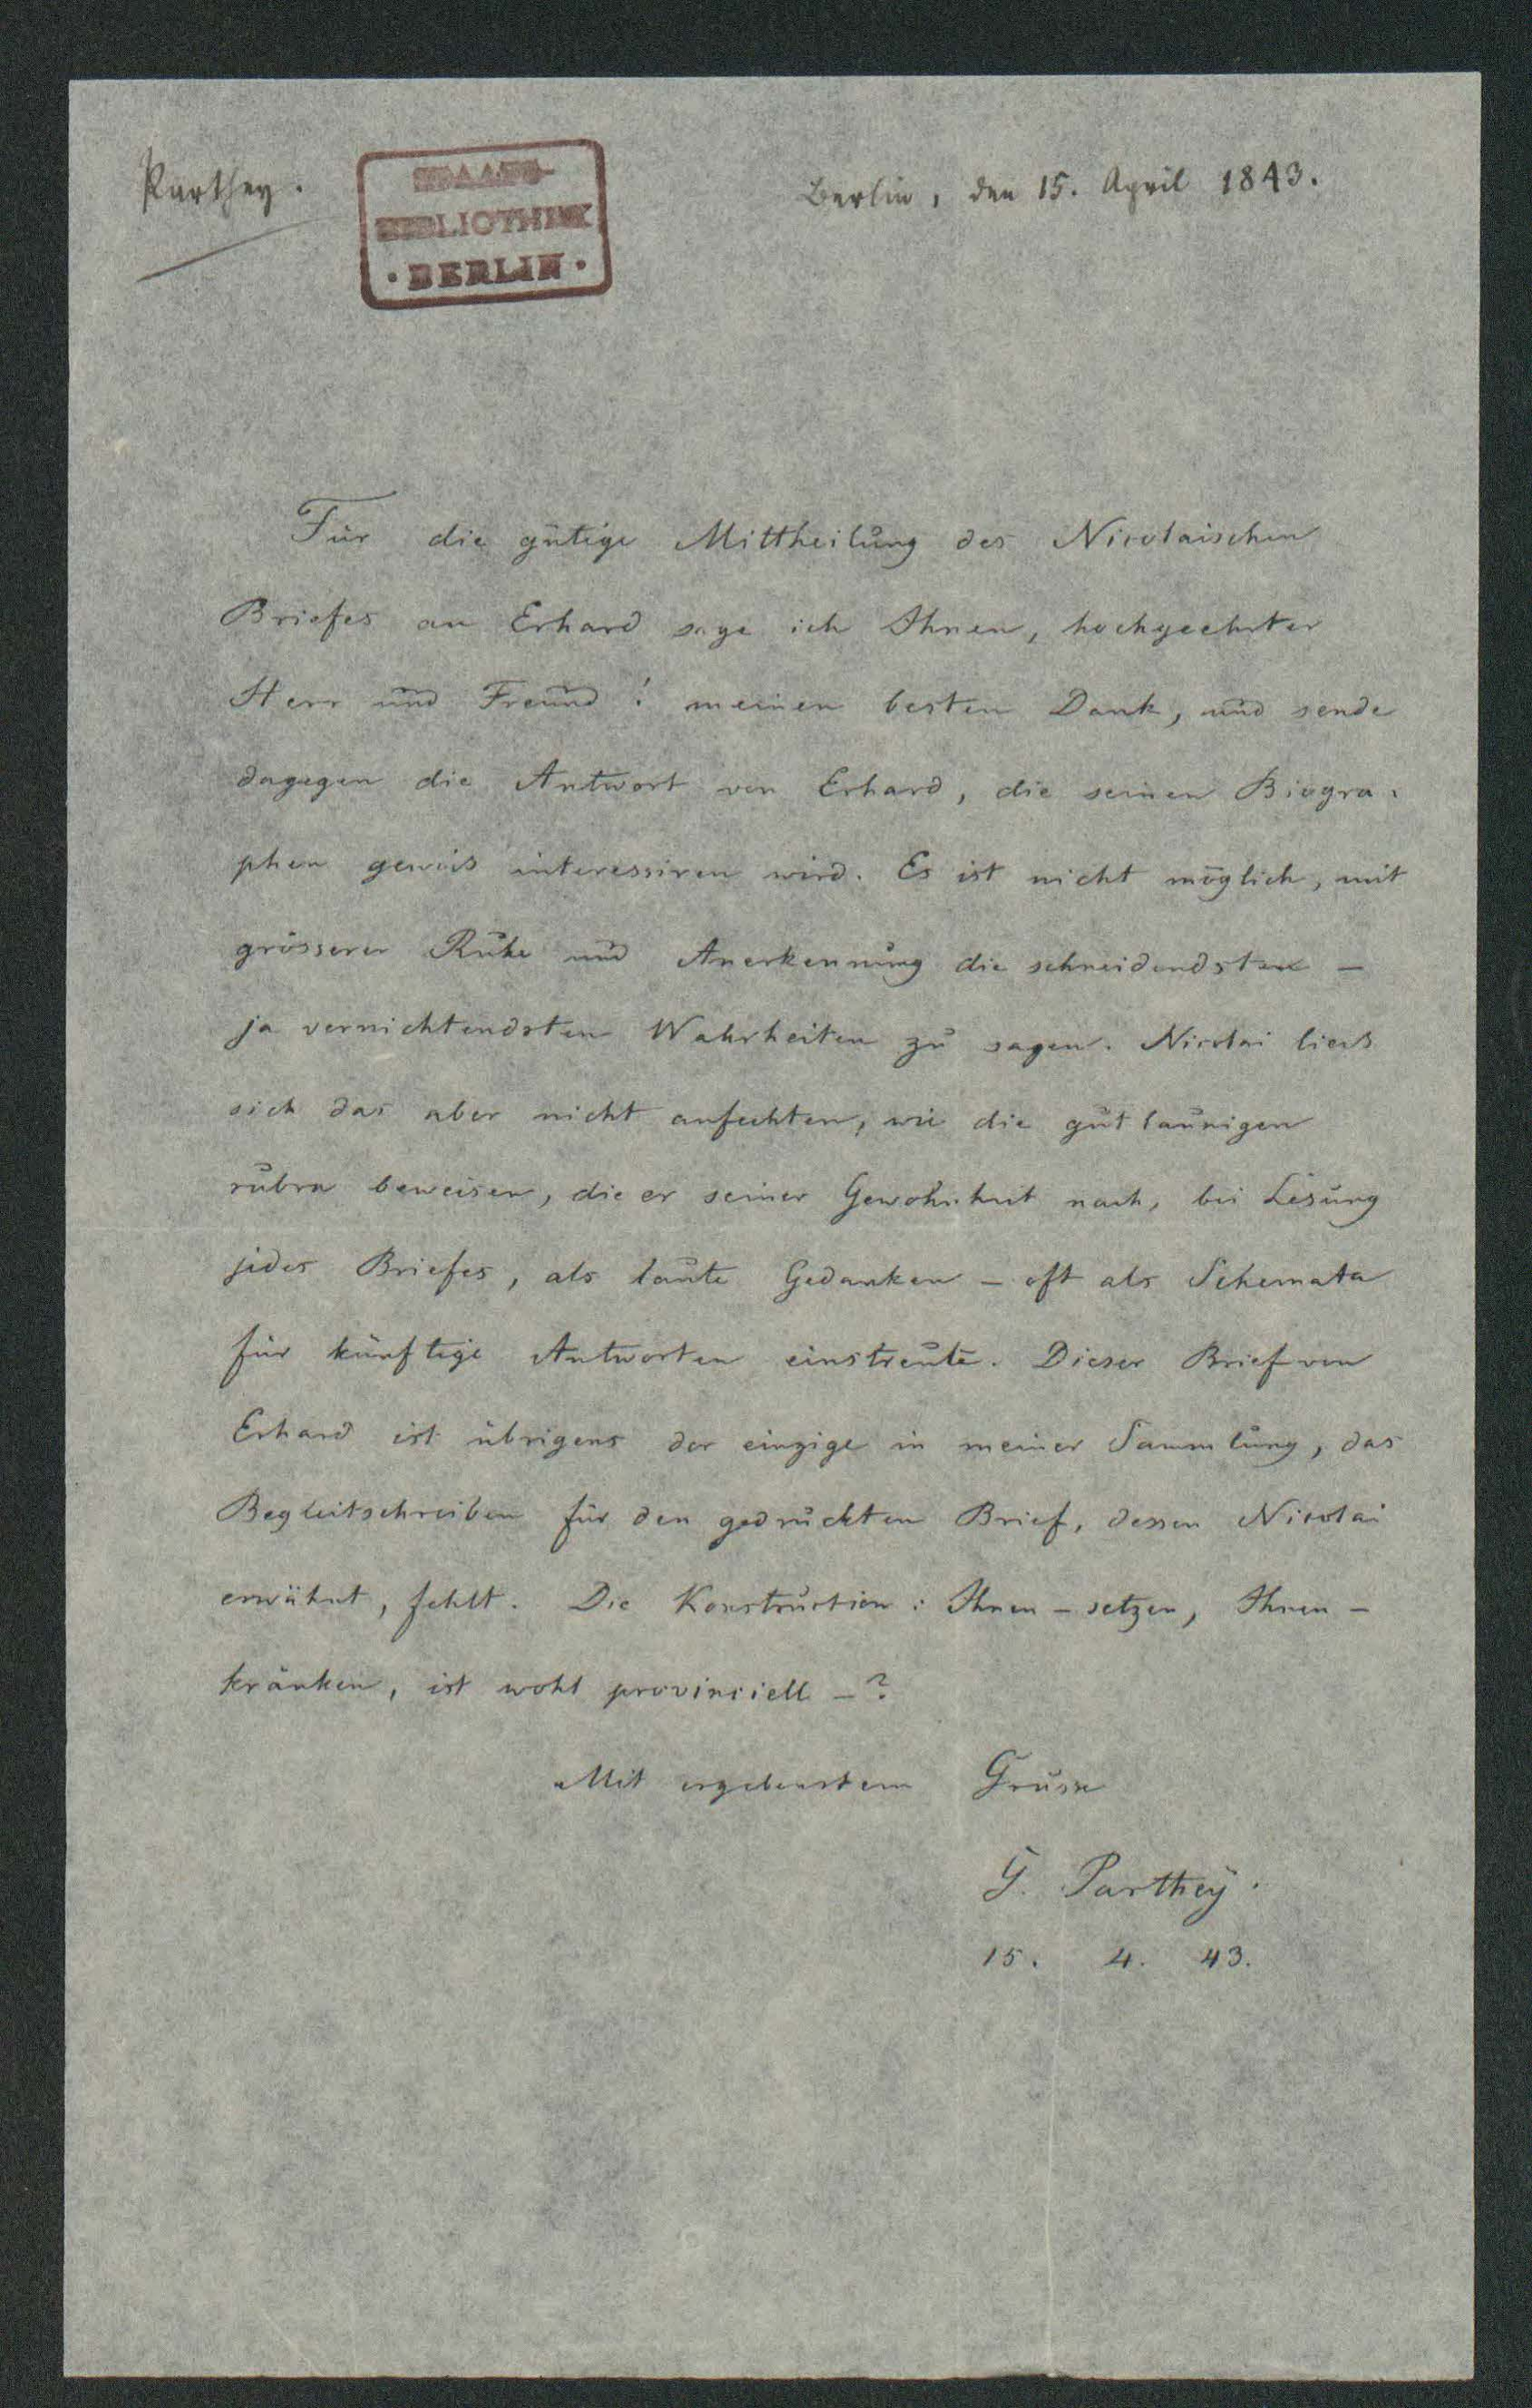 Parthey.
STAATS-
BIBLIOTHEK
· BERLIN ·
Berlin, den 15. April 1843.
Für die gütige Mittheilung des Nicolaischen
Briefes an Erhard sage ich Ihnen, hochgeehrter
Herr und Freund! meinen besten Dank, und sende
dagegen die Antwort von Erhard, die seinen Biogra-
phen gewis interessiren wird. Es ist nicht möglich, mit
grösserer Ruhe und Anerkennung die schneidendsten –
ja vernichtendsten Wahrheiten zu sagen. Nicolai lies
sich das aber nicht anfechten, wie die gutlaunigen
rubra beweisen, die er seiner Gewohnheit nach, bei Lesung
jedes Briefes, als laute Gedanken – oft als Schemata
für künftige Antworten einstreute. Dieser Brief von
Erhard ist übrigens der einzige in meiner Sammlung, das
Begleitschreiben für den gedruckten Brief, dessen Nicolai
erwähnt, fehlt. Die Konstruction: Ihnen – setzen, Ihnen –
kränken, ist wohl provinciell –?
Mit ergebenstem Grusse
G. Parthey.
15. 4. 43.